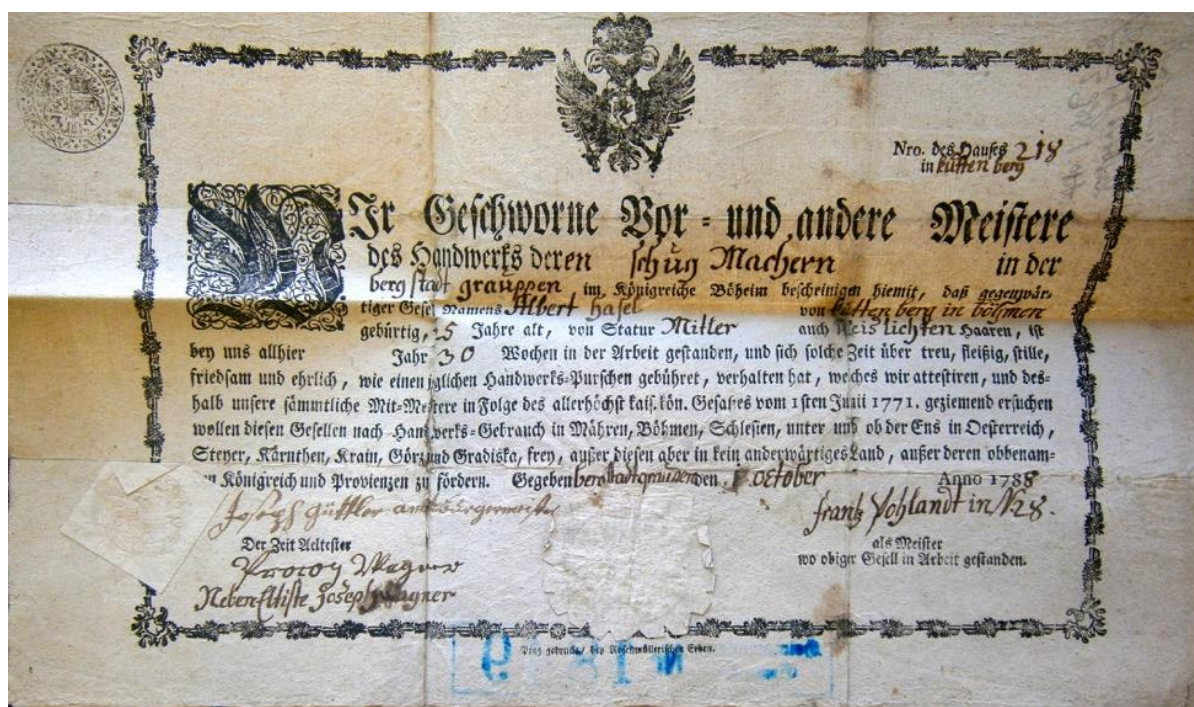 3 K
Nro. des Hauses 218
in kutten berg
Wir Geschworne Vor- und andere Meistere
des Handwerks deren schug Machern in der
berg stadt grauppen im Königreiche Böheim bescheinigen hiemit, daß gegenwär-
tiger Gesel Namens Albert hasel von kutten berg in böhmen
gebürtig, 25 Jahre alt, von Statur Mitler auch lichten Haaren, ist
bey uns allhier Jahr 30 Wochen in der Arbeit gestanden, und sich solche Zeit über treu, fleißig, stille,
friedsam und ehrlich, wie einen jglichen Handwerks-Purschen gebühret, verhalten hat, welches wir attestiren, und des-
halb unsere sämmtliche Mit-Meistere in Folge des allerhöchst kais. kön. Gesatzes vom 1sten Junii 1771. geziemend ersuchen
wollen diesen Gesellen nach Handwerks-Gebrauch in Mähren, Böhmen, Schlesien, unter und ob der Ens in Oesterreich,
Steyer, Kärnthen, Krain, Görz und Gradiska, frey, außer diesen aber in kein anderwärtiges Land, außer deren obbenam-
ten Königreich und Provienzen zu fördern. Gegeben bergstadt graupen den October Anno 1788
Joseph Güttler
frantz Pohlandt in N 28.
Der Zeit Aeltester
als Meister
wo obiger Gesell in Arbeit gestanden.
Wagner
Neben Eltiste Joseph Wagner
Prag gedruckt, bey Rosenmüllerischen Erben.